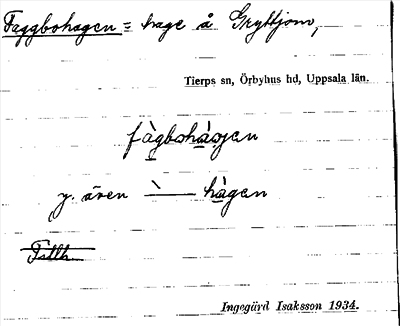 Faggbohagen = hage å Gryttjom,
Tierps sn, Örbyhus hd, Uppsala län.
fàgbohàgen
y. även ̀ — hagen
Ingegärd Isaksson 1934.